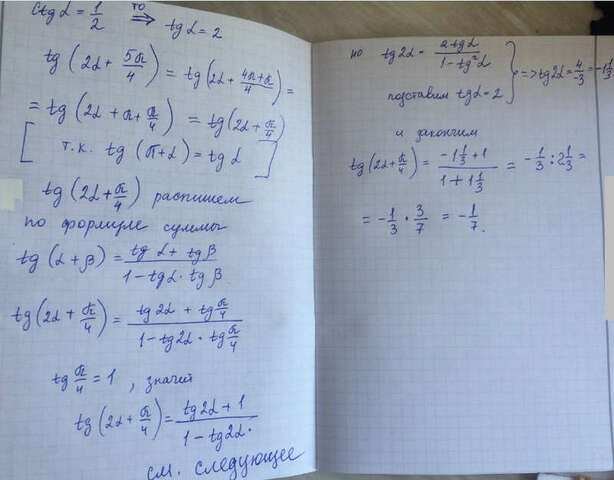 ctg α = 1/2 то ⇒ tg α = 2
tg(2α + 5π/4) = tg(2α + (4π+π)/4) =
= tg(2α + π + π/4) = tg(2α + π/4)
[ т.к. tg(π+α) = tg α ]
tg(2α + π/4) распишем
по формуле суммы
tg(α + β) = (tg α + tg β)/(1 - tg α · tg β)
tg(2α + π/4) = (tg 2α + tg π/4)/(1 - tg 2α · tg π/4)
tg π/4 = 1, значит
tg(2α + π/4) = (tg 2α + 1)/(1 - tg 2α ·
см. следующее
но tg 2α = 2 tg α/(1 - tg²α) } => tg 2α = 4/-3 = -1 1/3
подставим tg α = 2
и закончим
tg(2α + π/4) = (-1 1/3 + 1)/(1 + 1 1/3) = -1/3 : 2 1/3 =
= -1/3 · 3/7 = -1/7.